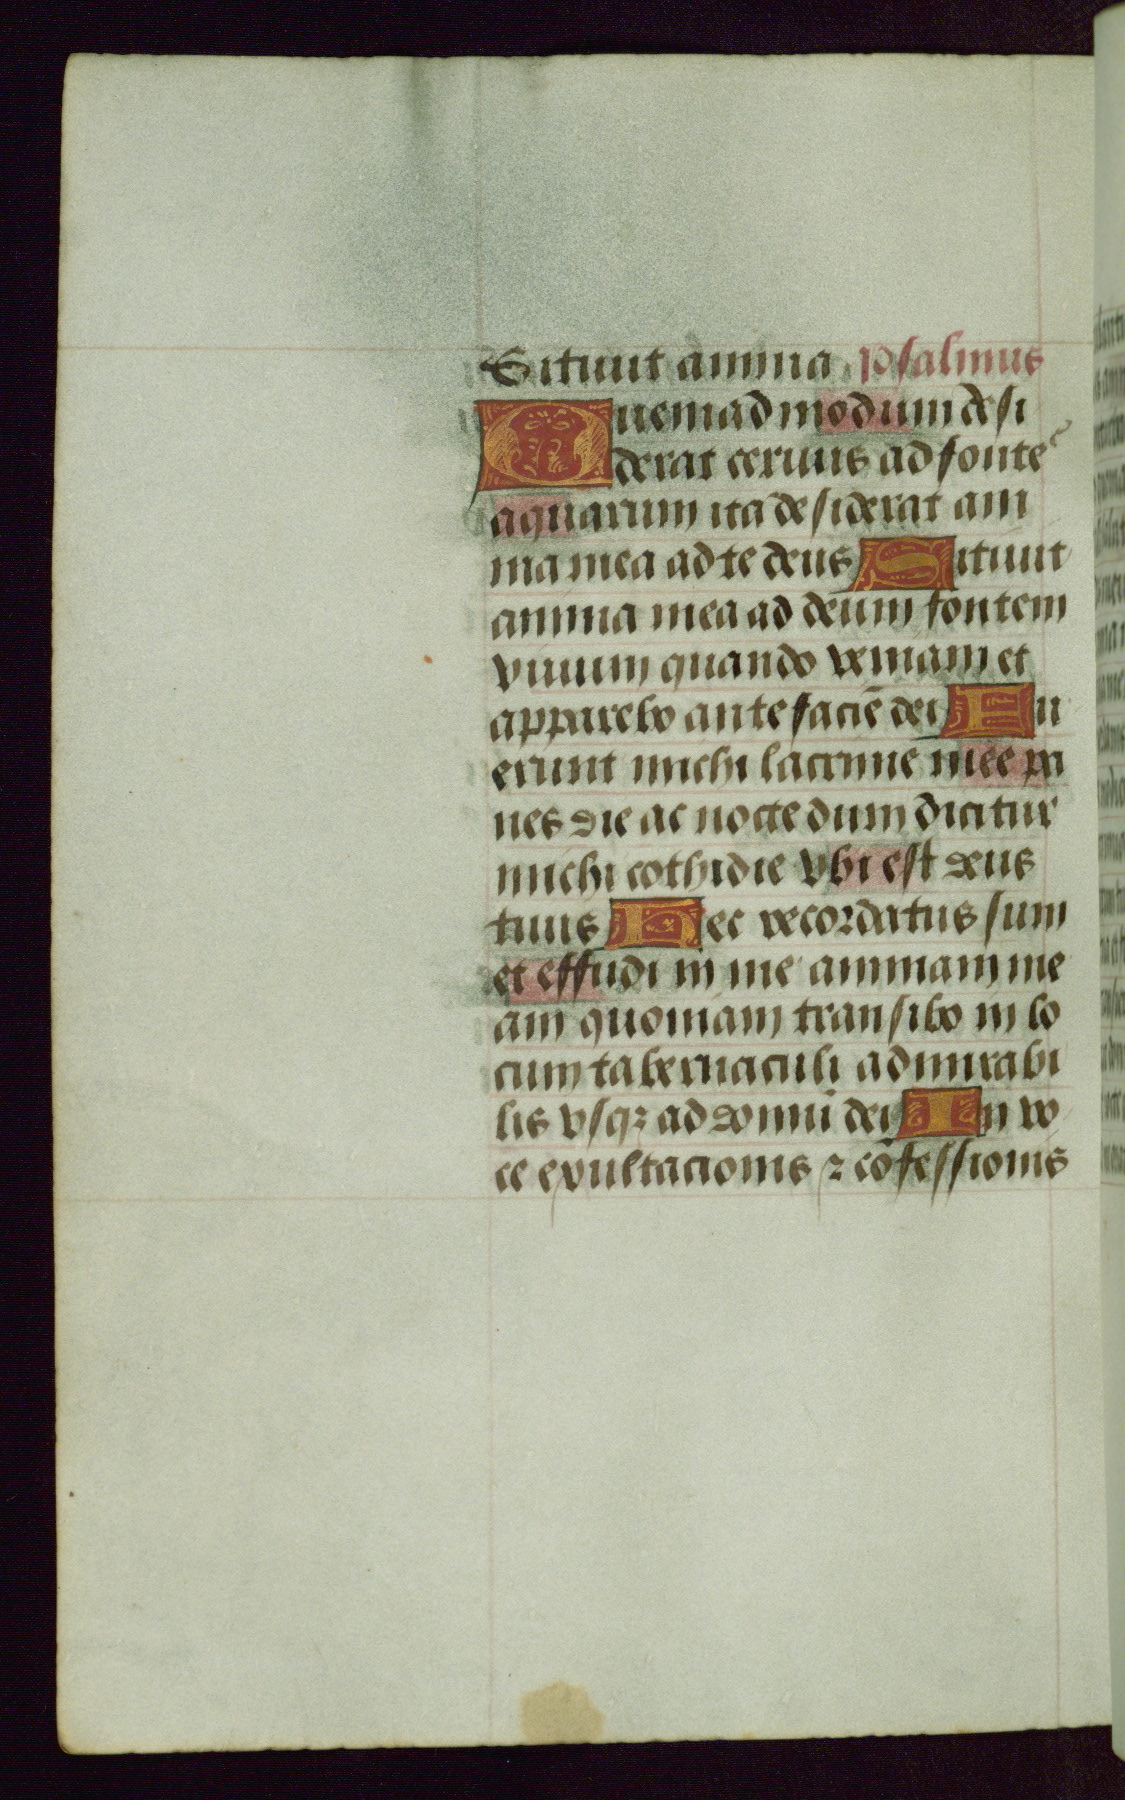 Sitiuit anima. Psalmus
Quemadmodum desi
derat ceruus ad fonte
aquarum ita desiderat ani
ma mea ad te deus Sitiuit
anima mea ad deum fontem
viuum quando veniam et
apparebo ante faciē dei Fu
erunt michi lacrime mee pa
nes die ac nocte dum dicitur
michi cothidie vbi est deus
tuus Hec recordatus sum
et effudi in me animam me
am quoniam transibo in lo
cum tabernaculi admirabi
lis vsqꝫ ad domū dei In vo
ce exultacionis ⁊ cōfessionis